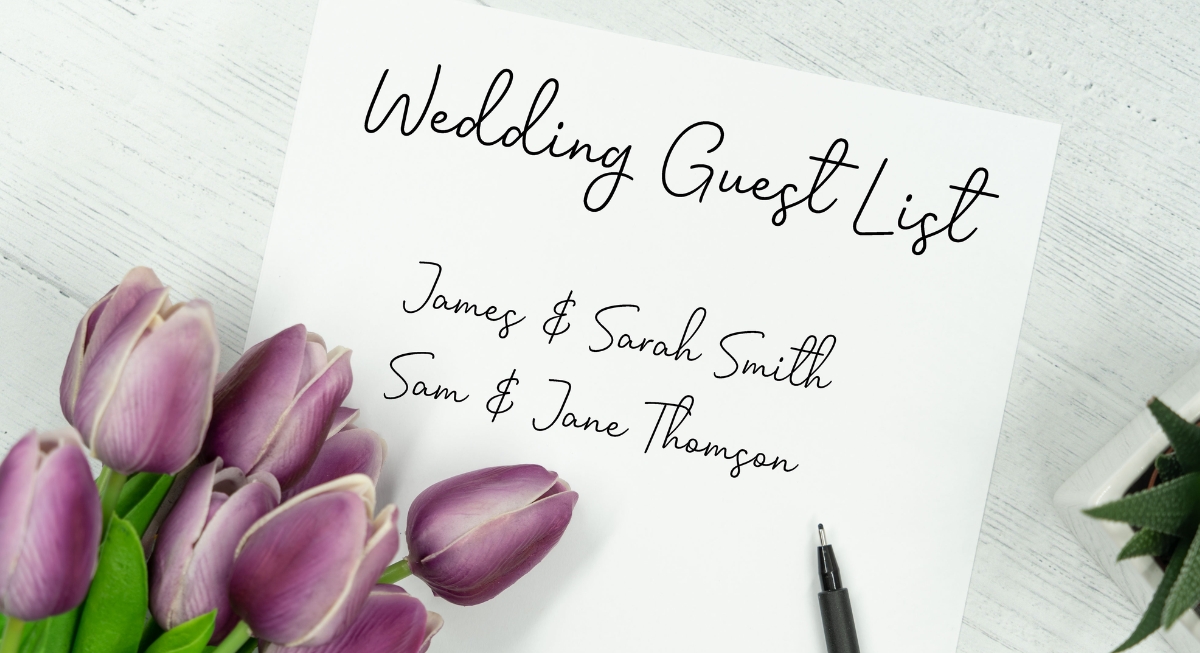 Wedding Guest List
James & Sarah Smith
Sam & Jane Thomson